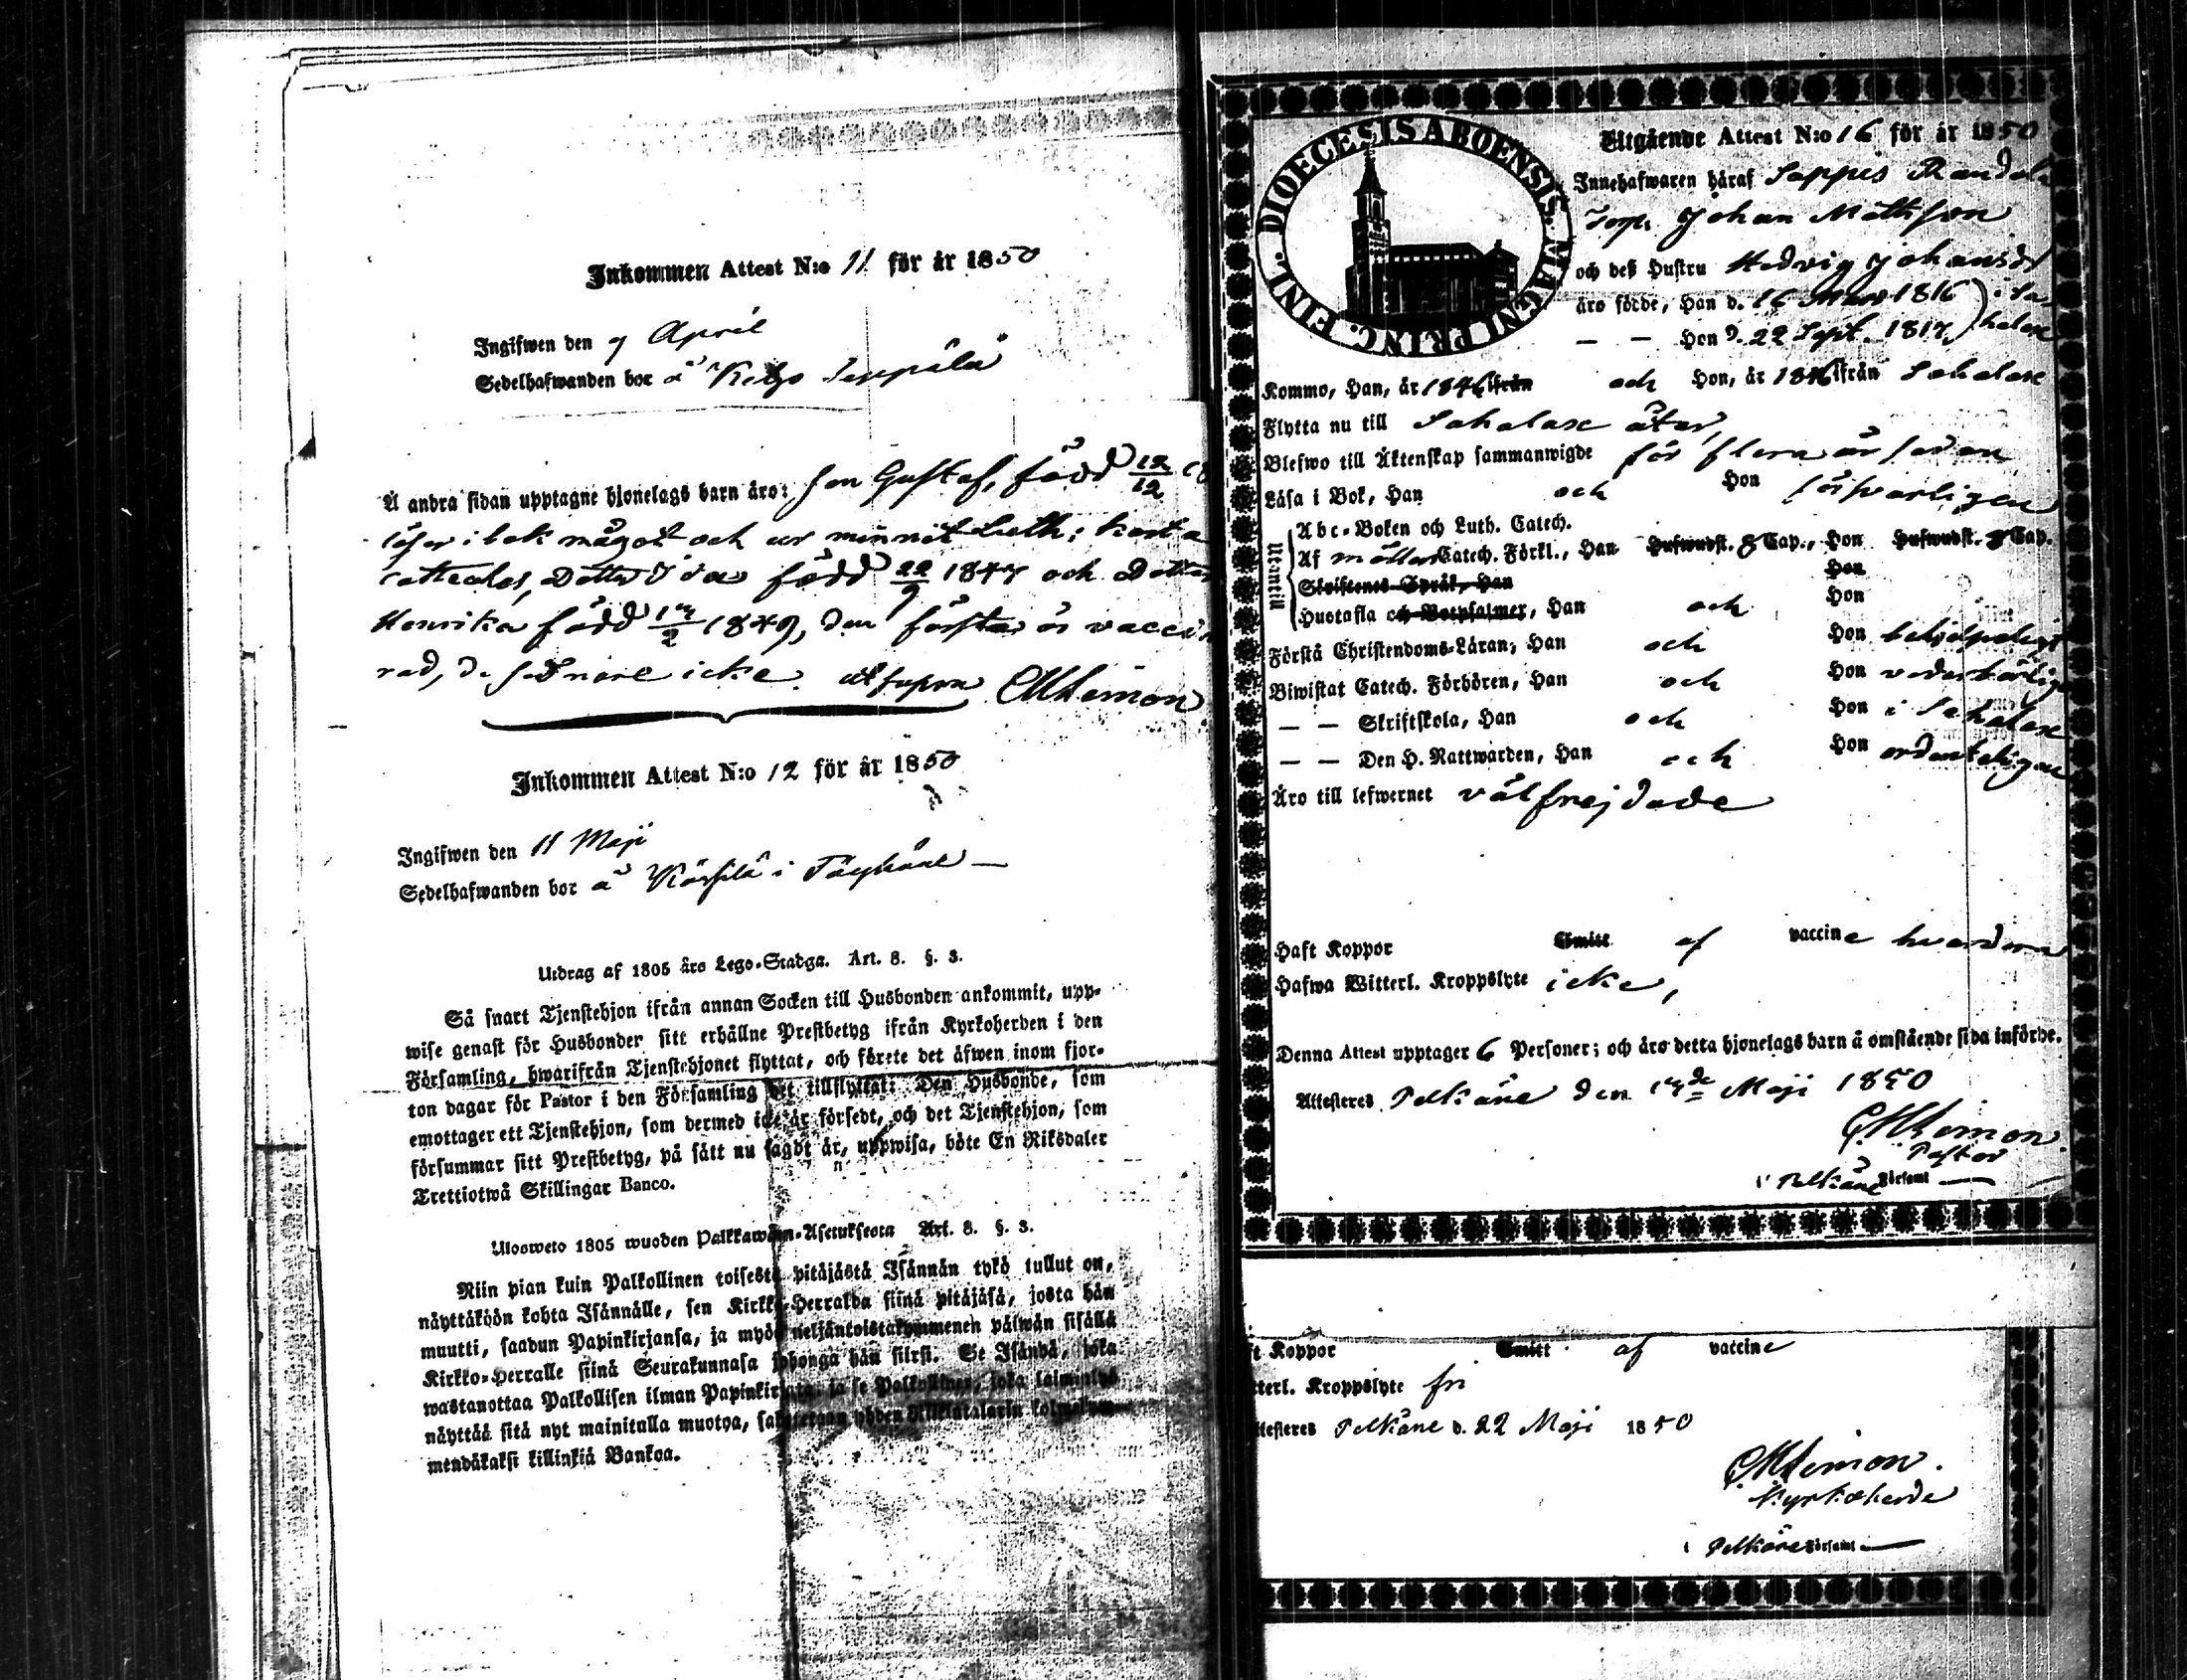 Inkommen Attest N:o 11 för år 1850
Ingifwen den 7 April
Sedelhafwanden bor å Kelgo Seppälä
Å andra sidan upptagne hjonelags barn äro: Son Gustaf, född 12/12 18
läser i bok något och ur minnet Luth: korta
catteches, Dotter Ida född 22/9 1847 och Dotter
Henrika född 17/2 1849, den första är vaccine
rad, de sednare icke. ut supra CHLemon
Inkommen Attest N:o 12 för år 1850
Ingifwen den 11 Maji
Sedelhafwanden bor å Kärfilä i
Utdrag af 1805 års Lego-Stadga. Art. 8. §. 3.
Så snart Tjenstehjon ifrån annan Socken till Husbonden ankommit, upp-
wise genast för Husbonden sitt erhållne Prestbetyg ifrån Kyrkoherden i den
Församling, hwarifrån Tjenstehjonet flyttat, och förete det äfwen inom fjor-
ton dagar för Pastor i den Församling det tillflyttat: Den Husbonde, som
emottager ett Tjenstehjon, som dermed icke är försedt, och det Tjenstehjon, som
försummar sitt Prestbetyg, på sätt nu sagdt är, uppwisa, böte En Riksdaler
Trettiotwå Skillingar Banco.
Ulosweto 1805 wuoden Palkkawäen-Asetuksesta Art. 8. §. 3.
Niin pian kuin Palkollinen toisesta pitäjästä Isännän tykö tullut on,
näyttäköön kohta Isännälle, sen Kirkko-Herralda siinä pitäjäsä, josta hän
muutti, saadun Papinkirjansa, ja myös neljäntoistakymmenen päiwän sisällä
Kirkko-Herralle siinä Seurakunnasa johonga hän siirsi. Se Isändä, joka
wastanottaa Palkollisen ilman Papinkirjata, ja se Palkollinen, joka laiminlyö
näyttää sitä nyt mainitulla muotoa, sakotetaan yhden Riksitalarin kolmekym-
mendäkaksi killinkiä Bankoa.
DIOECESIS ABOENSIS. MAGNI PRINC. FINL.
Utgående Attest N:o 16 för år 1850
Innehafwaren häraf Soppis Randala
Torp. Johan Mattsson
och deß Hustru Hedvig Johansdr
äro födde, Han d. 16 Mars 1816 } i Sa-
— — Hon d. 22 Sept. 1817 } halax
Kommo, Han, år 1846 ifrån och Hon, år 1846 ifrån Sahalax
Flytta nu till Sahalax åter,
Blefwo till Äktenskap sammanwigde för flera år sedan
Läsa i Bok, Han och Hon försvarligen
Utantill
Abc-Boken och Luth. Catech.
Af möllers Catech. Förkl., Han Hufwudst. 8 Cap., Hon Hufwudst. 8 Cap.
Skriftenes Språk, Han Hon
Hustafla och Botpsalmer, Han och Hon
Förstå Christendoms-Läran, Han och Hon behjelpeligt
Biwistat Catech. Förhören, Han och Hon vederbörlige
— — Skriftskola, Han och Hon i Sahalax
— — Den H. Nattwarden, Han och Hon ordenteligen
Äro till lefwernet välfrejdade
Haft Koppor Smitt af vaccine hvardera
Hafwa Witterl. Kroppslyte icke,
Denna Attest upptager 6 Personer; och äro detta hjonelags barn å omstående sida införde.
Attesteres Pelkäne den 17de Maji 1850
CHLemon
Pastor
i Pelkäne Församl
ft Koppor Smitt af vaccine
tterl. Kroppslyte fri
ttesteres Pelkäne d. 22 Maji 1850
CHLemon.
Kyrkoherde
i Pelkäne Församl